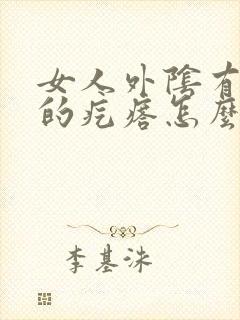 女人外陰有
的疙瘩怎麼
李基洙